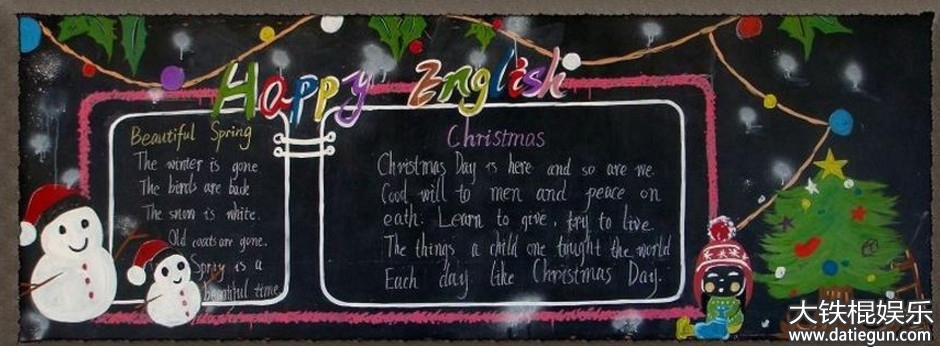 Happy English
Beautiful Spring
The winter is gone
The birds are back
The snow is white.
Old coats are gone.
Spray is a
beautiful time
Christmas
Christmas Day is here and so are we.
Good will to men and peace on
eath. Learn to give, try to live.
The things a child one taught the world
Each day like Christmas Day.
大铁棍娱乐
www.datiegun.com